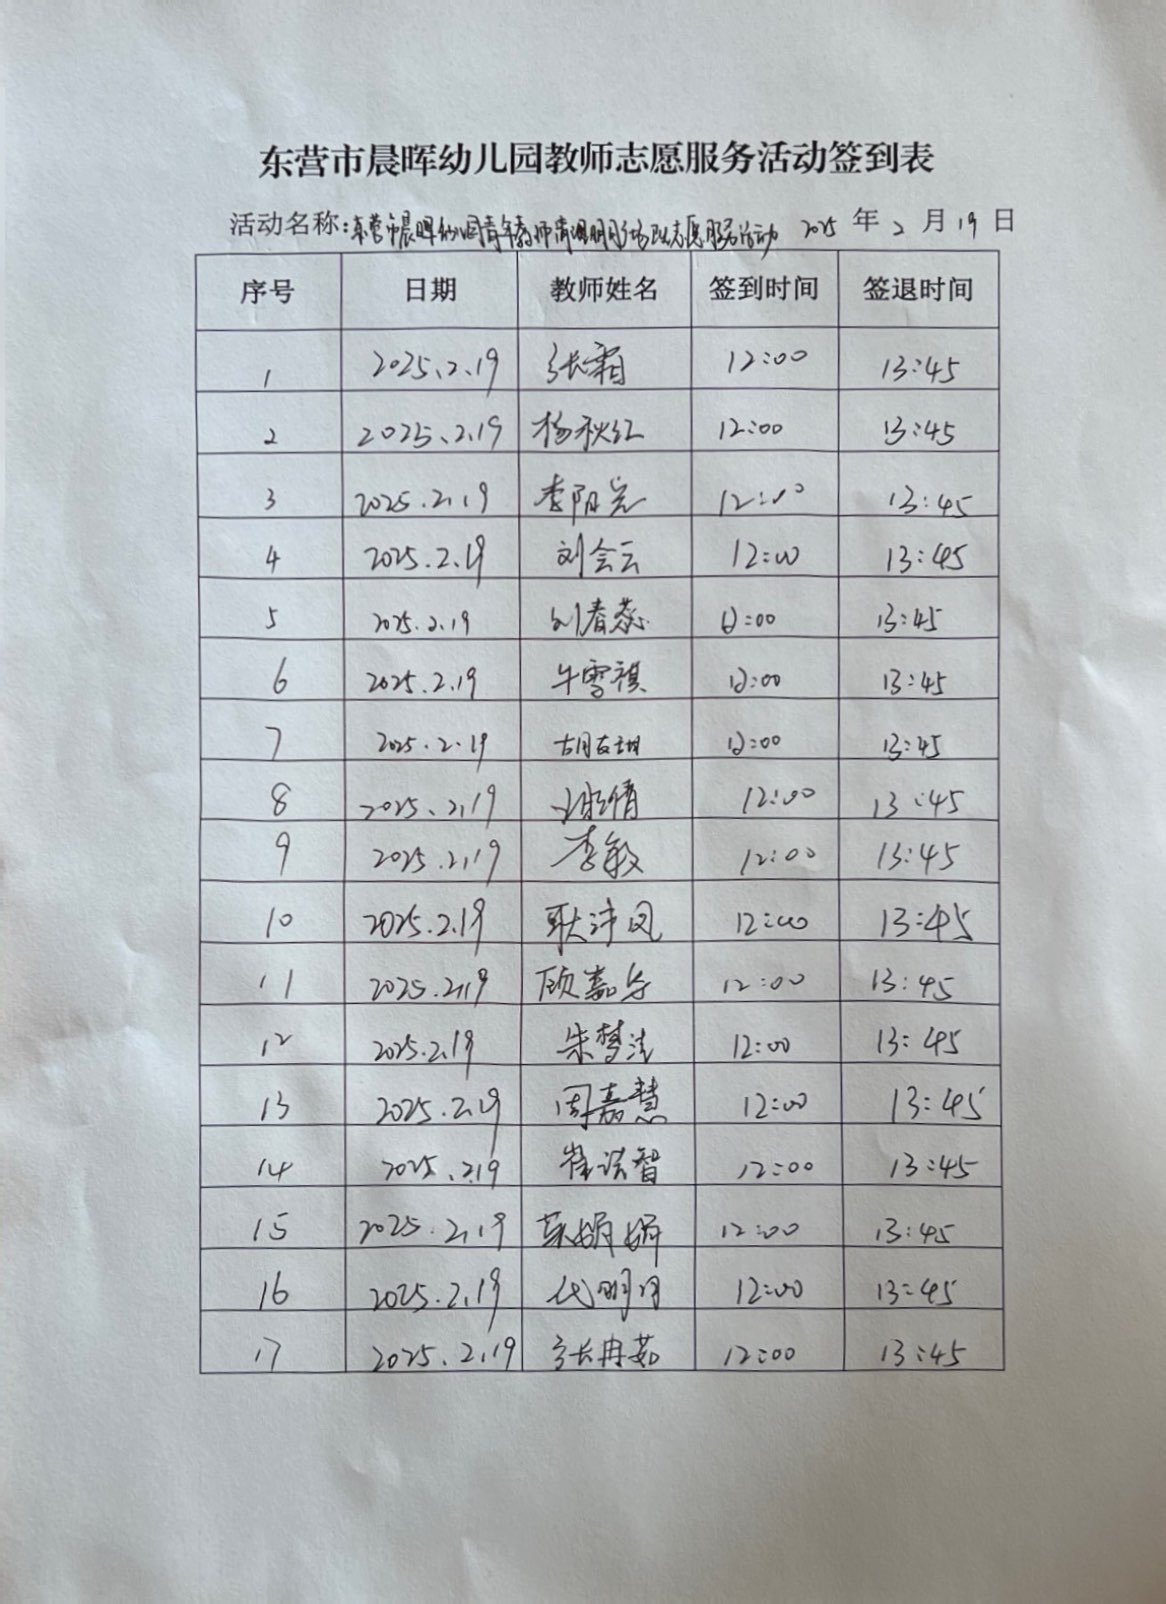 东营市晨晖幼儿园教师志愿服务活动签到表
活动名称:东营市晨晖幼儿园青年教师清理 志愿服务活动 2025 年 2 月 19 日
序号 日期 教师姓名 签到时间 签退时间
1 2025.2.19 张霜 12:00 13:45
2 2025.2.19 杨秋红 12:00 13:45
3 2025.2.19 李阳光 12:00 13:45
4 2025.2.19 刘会云 12:00 13:45
5 2025.2.19 刘春蕊 12:00 13:45
6 2025.2.19 牛雪祺 12:00 13:45
7 2025.2.19 胡友甜 12:00 13:45
8 2025.2.19 12:00 13:45
9 2025.2.19 李敏 12:00 13:45
10 2025.2.19 耿沛凤 12:00 13:45
11 2025.2.19 顾嘉乐 12:00 13:45
12 2025.2.19 朱梦洁 12:00 13:45
13 2025.2.19 周嘉慧 12:00 13:45
14 2025.2.19 12:00 13:45
15 2025.2.19 12:00 13:45
16 2025.2.19 代明月 12:00 13:45
17 2025.2.19 张冉茹 12:00 13:45